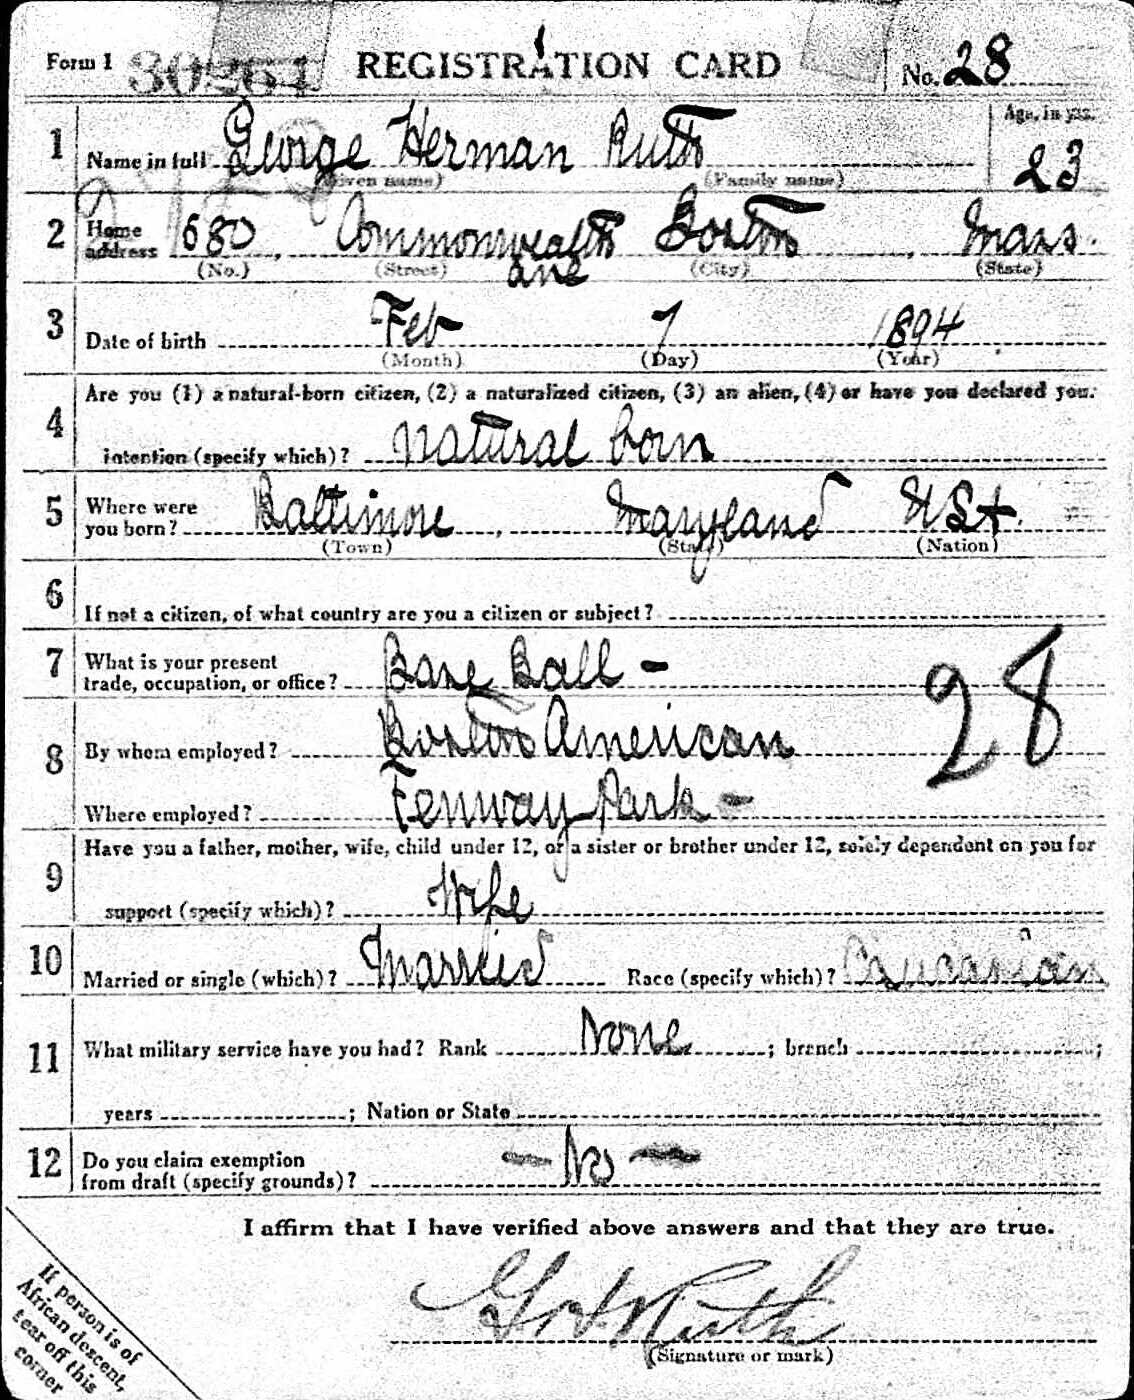 Form 1 30264 REGISTRATION CARD No. 28
1 Name in full George Herman Ruth Age, in yrs. 23
(Given name) (Family name)
2 Home address 680 Commonwealth Boston, Mass.
(No.) (Street) ave (City) (State)
3 Date of birth Feb 7 1894
(Month) (Day) (Year)
4 Are you (1) a natural-born citizen, (2) a naturalized citizen, (3) an alien, (4) or have you declared your
intention (specify which)? natural born
5 Where were
you born? Baltimore, Maryland USA
(Town) (State) (Nation)
6 If not a citizen, of what country are you a citizen or subject?
7 What is your present
trade, occupation, or office? Base Ball -
28
8 By whom employed? Boston American
Where employed? Fenway Park -
9 Have you a father, mother, wife, child under 12, or a sister or brother under 12, solely dependent on you for
support (specify which)? Wife
10 Married or single (which)? Married Race (specify which)? Caucasian
11 What military service have you had? Rank None ; branch ;
years ; Nation or State
12 Do you claim exemption
from draft (specify grounds)? - No -
I affirm that I have verified above answers and that they are true.
G H Ruth
(Signature or mark)
If person is of
African descent,
tear off this
corner